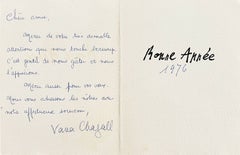 Chers amis,
Merci de votre si aimable
attention qui nous touche beaucoup
c'est gentil de nous gâter et nous
l'apprécions.
Merci aussi pour vos vœux.
Nous vous adressons les nôtres avec
notre affectueux souvenir,
Vava Chagall
Bonne Année
1976